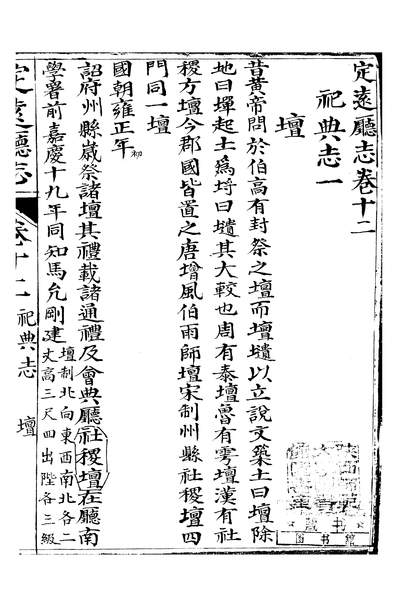 定遠廳志卷十二
祀典志一
壇
昔黃帝問於伯高有封祭之壇而壇壝以立說文築土曰壇除
地曰墠起土爲埒曰壝其大較也周有泰壇魯有雩壇漢有社
稷方壇今郡國皆置之唐增風伯雨師壇宋制州縣社稷壇四
門同一壇
國朝雍正年初
詔府州縣歲祭諸壇其禮載諸通禮及會典廳社稷壇在廳南
學署前嘉慶十九年同知馬允剛建壇制北向東西南北各二
丈高三尺四出陛各三級
定遠廳志 卷十二 祀典志 壇
圖書館